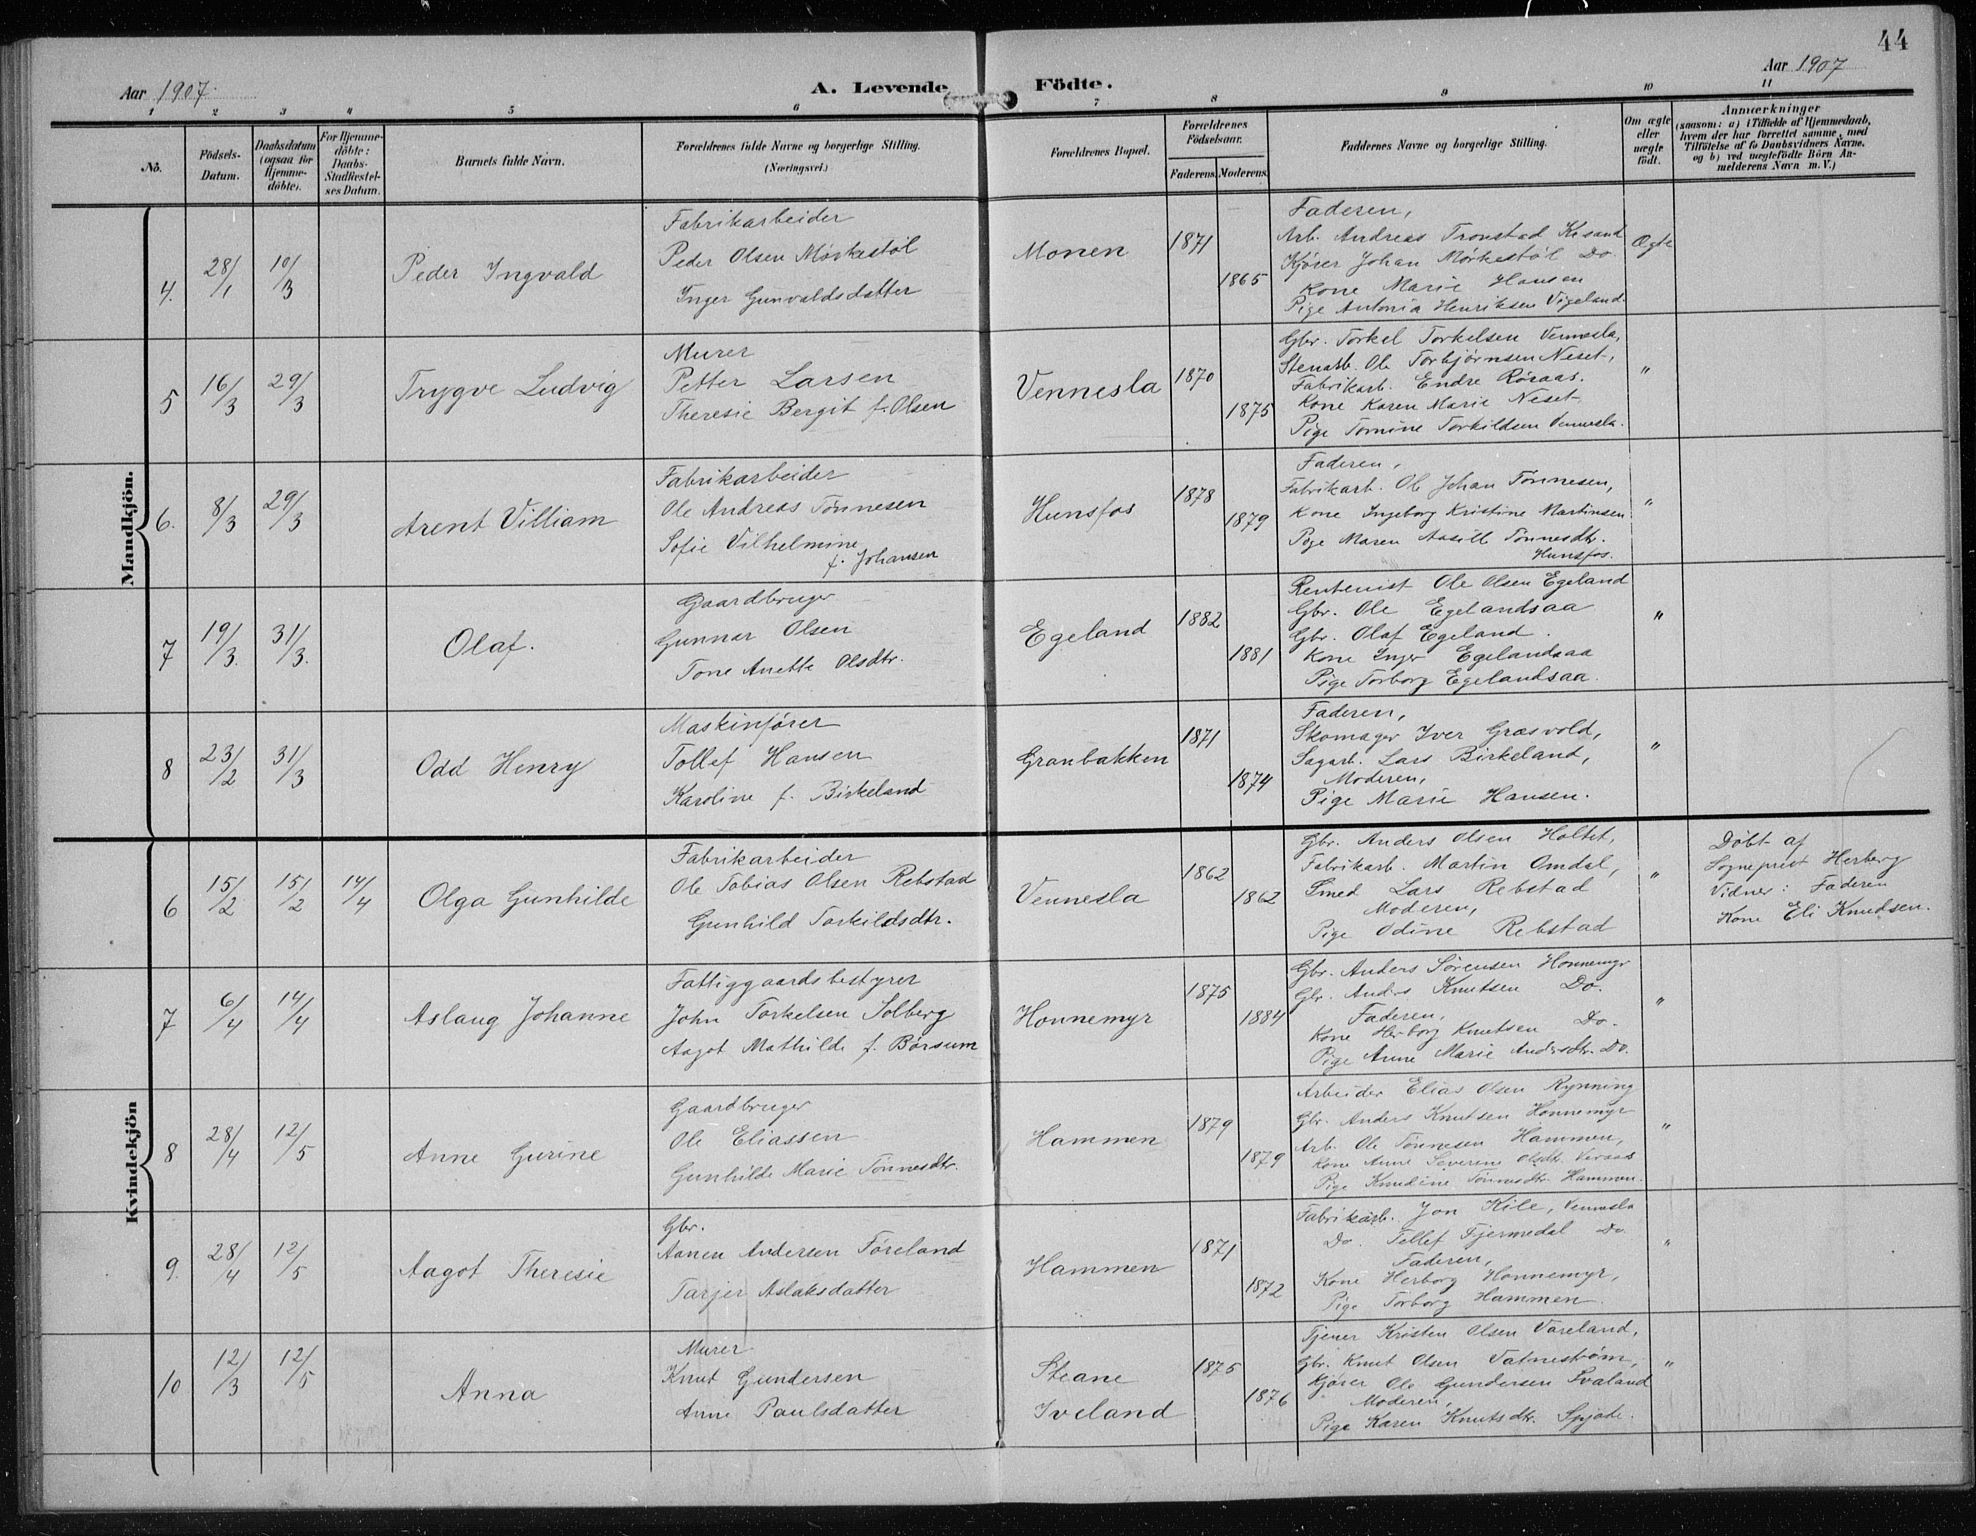 44
Aar 1907.
A. Levende Födte.
Aar 1907
1 2 3 4 5 6 7 8 9 10 11
No.
Födsels-
Datum.
Daabsdatum
(ogsaa for
Hjemme-
döbte).
For Hjemme-
döbte:
Daabs-
Stadfæstel-
ses Datum.
Barnets fulde Navn.
Forældrenes fulde Navne og borgerlige Stilling.
(Næringsvei.)
Forældrenes Bopæl.
Forældrenes
Födselsaar.
Faderens. Moderens.
Faddernes Navne og borgerlige Stilling.
Om ægte
eller
uægte
födt.
Anmærkninger
(saasom: a) i Tilfælde af Hjemmedaab,
hvem der har forrettet samme, med
Tilföielse af to Daabsvidners Navne,
og b) ved uægtefödte Börn An-
melderens Navn m. V.)
Mandkjön.
4.
28/1
10/3
Peder Ingvald
Fabrikarbeider
Peder Olsen Mørkestøl
Inger Gunvaldsdatter
Monen
1871
1865
Faderen,
Arb. Andreas Tronstad Krsand
Kjører Johan Mørkestøl Do
Kone Marie Hansen
Pige Antonia Henriksen Vigeland.
Ægte
5
16/3
29/3
Trygve Ludvig
Murer
Petter Larsen
Theresie Bergit f. Olsen
Vennesla
1870
1875
Gbr. Torkel Torkelsen Vennesla,
Stenarb. Ole Torbjørnsen Neset,
Fabrikarb. Endre Røraas.
Kone Karen Marie Neset.
Pige Tomine Torkildsen Vennesla.
"
6.
8/3
29/3
Arent Villiam
Fabrikarbeider
Ole Andreas Tønnesen
Sofie Vilhelmine
f. Johansen
Hunsfos
1878
1879
Faderen,
Fabrikarb. Ole Johan Tønnesen,
Kone Ingeborg Kristine Martinsen
Pige Maren Aasill Tønnesdtr.
Hunsfos.
"
7
19/3.
31/3.
Olaf.
Gaardbruger
Gunnar Olsen
Tone Anette Olsdtr.
Egeland
1882
1881
Rentenist Ole Olsen Egeland
Gbr. Ole Egelandsaa
Gbr. Olaf Egeland.
Kone Inger Egelandsaa
Pige Torborg Egelandsaa.
"
8
23/2
31/3
Odd Henry
Maskinfører
Tollef Hansen
Karoline f. Birkeland
Granbakken
1871
1874
Faderen,
Skomager Iver Græsvold,
Sagarb. Lars Birkeland,
Moderen,
Pige Marie Hansen.
"
Kvindekjön
6
15/2
15/2
14/4
Olga Gunhilde
Fabrikarbeider
Ole Tobias Olsen Rebstad
Gunhild Torkildsdtr.
Vennesla
1862
1862
Gbr. Anders Olsen Holtet,
Fabrikarb. Martin Omdal,
Smed Lars Rebstad
Moderen,
Pige Odine Rebstad
"
Døbt af
Sogneprest Herberg
Vidner: Faderen
Kone Eli Knudsen.
7
6/4
14/4
Aslaug Johanne
Fattiggaardsbestyrer
John Torkelsen Solberg
Aagot Mathilde f. Børsum
Honnemyr
1875
1884
Gbr. Anders Sørensen Honnemyr
Gbr. Anders Knutsen Do.
Faderen,
Kone Herborg Knutsen Do.
Pige Anne Marie Andersdtr. Do.
"
8
28/4
12/5
Anne Gurine
Gaardbruger
Ole Eliassen
Gunhilde Marie Tønnesdtr.
Hammen
1879
1879
Arbeider Elias Olsen Rynning
Gbr. Anders Knutsen Honnemyr
Arb. Ole Tønnesen Hammen,
Kone Anne Severine Olsdtr. Veraas
Pige Knudine Tønnesdtr. Hammen.
"
9.
28/4
12/5
Aagot Theresie
Gbr.
Aanen Andersen Føreland
Tarjer Aslaksdatter
Hammen
1871
1872
Fabrikarb. Jon Kile, Vennesla
Do. Tellef Fjermedal Do
Faderen,
Kone Herborg Honnemyr,
Pige Torborg Hammen
"
10
12/3
12/5
Anna
Murer
Knut Gundersen
Anne Paulsdatter
Steane
Iveland
1875
1876
Tjener Kristen Olsen Vareland,
Gbr. Knut Olsen Vatnestrøm,
Kjører Ole Gundersen Fvaland
Moderen,
Pige Karen Knutsdtr.
"